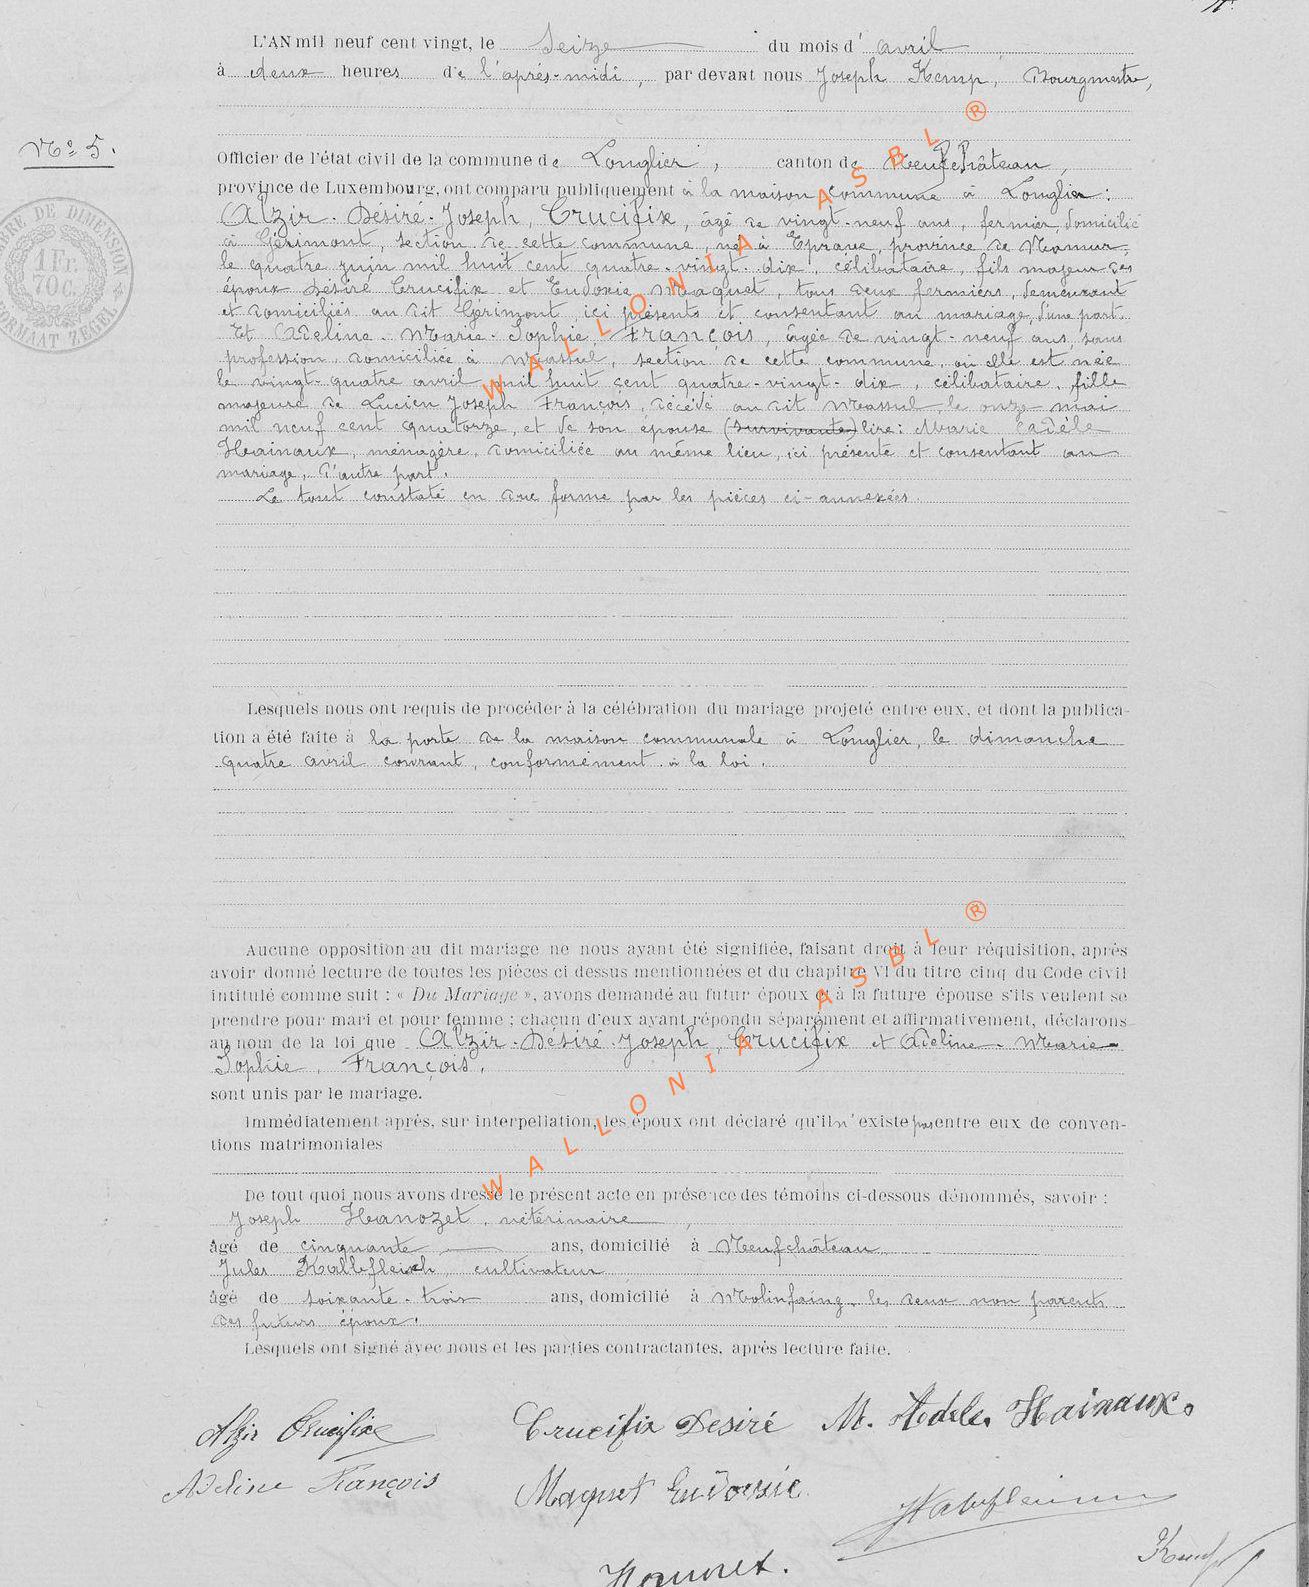 L'AN mil neuf cent vingt, le Seize du mois d'avril
à deux heures de l'après-midi, par devant nous Joseph Kemp, Bourgmestre,
No 5.
Officier de l'état civil de la commune de Longlier, canton de Neufchâteau,
province de Luxembourg, ont comparu publiquement à la maison commune à Longlier:
Alzir-Désiré-Joseph, Crucifix, âgé de vingt-neuf ans, fermier, domicilié
à Gérimont, section de cette commune, né à Eprave, province de Namur,
le quatre juin mil huit cent quatre-vingt-dix, célibataire, fils majeur des
époux Désiré Crucifix et Eudoxie Maquet, tous deux fermiers, demeurant
et domiciliés au dit Gérimont, ici présents et consentant au mariage, d'une part.
Et Adeline-Marie-Sophie, François, âgée de vingt-neuf ans, sans
profession, domiciliée à Massul, section de cette commune, où elle est née
le vingt-quatre avril mil huit cent quatre-vingt-dix, célibataire, fille
majeure de Lucien Joseph François, décédé au dit Massul le onze mai
mil neuf cent quatorze, et de son épouse (survivante) lire: Marie
Hainaux, ménagère, domiciliée au même lieu, ici présente et consentant au
mariage, d'autre part.
Le tout constaté en due forme par les pièces ci-annexées.
Lesquels nous ont requis de procéder à la célébration du mariage projeté entre eux, et dont la publica-
tion a été faite à la porte de la maison communale à Longlier, le dimanche
quatre avril courant, conformément à la loi.
Aucune opposition au dit mariage ne nous ayant été signifiée, faisant droit à leur réquisition, après
avoir donné lecture de toutes les pièces ci dessus mentionnées et du chapitre VI du titre cinq du Code civil
intitulé comme suit : « Du Mariage », avons demandé au futur époux et à la future épouse s'ils veulent se
prendre pour mari et pour femme ; chacun d'eux ayant répondu séparément et affirmativement, déclarons
au nom de la loi que Alzir-Désiré-Joseph, Crucifix et Adeline-Marie-
Sophie, François,
sont unis par le mariage.
Immédiatement après, sur interpellation, les époux ont déclaré qu'il n'existe pas entre eux de conven-
tions matrimoniales
De tout quoi nous avons dressé le présent acte en présence des témoins ci-dessous dénommés, savoir :
Joseph Hanozet, vétérinaire,
âgé de cinquante ans, domicilié à Neufchâteau
Jules Kallefleisch, cultivateur
âgé de soixante-trois ans, domicilié à Molinfaing, les deux non parents
des futurs époux.
Lesquels ont signé avec nous et les parties contractantes, après lecture faite.
Alzir Crucifix
Crucifix Desiré
M. Adele Hainaux.
Adeline François
Maquet Eudoxie
WALLONIA ASBL ®
WALLONIA ASBL ®
1 Fr.
70 c.